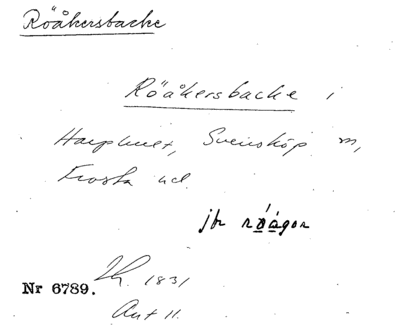 Röåkersbacke
Röåkersbacke i
Harphult, Svensköp m,
Frosta hd.
jfr röågor
Nr 6789. 1831
Ant 11.